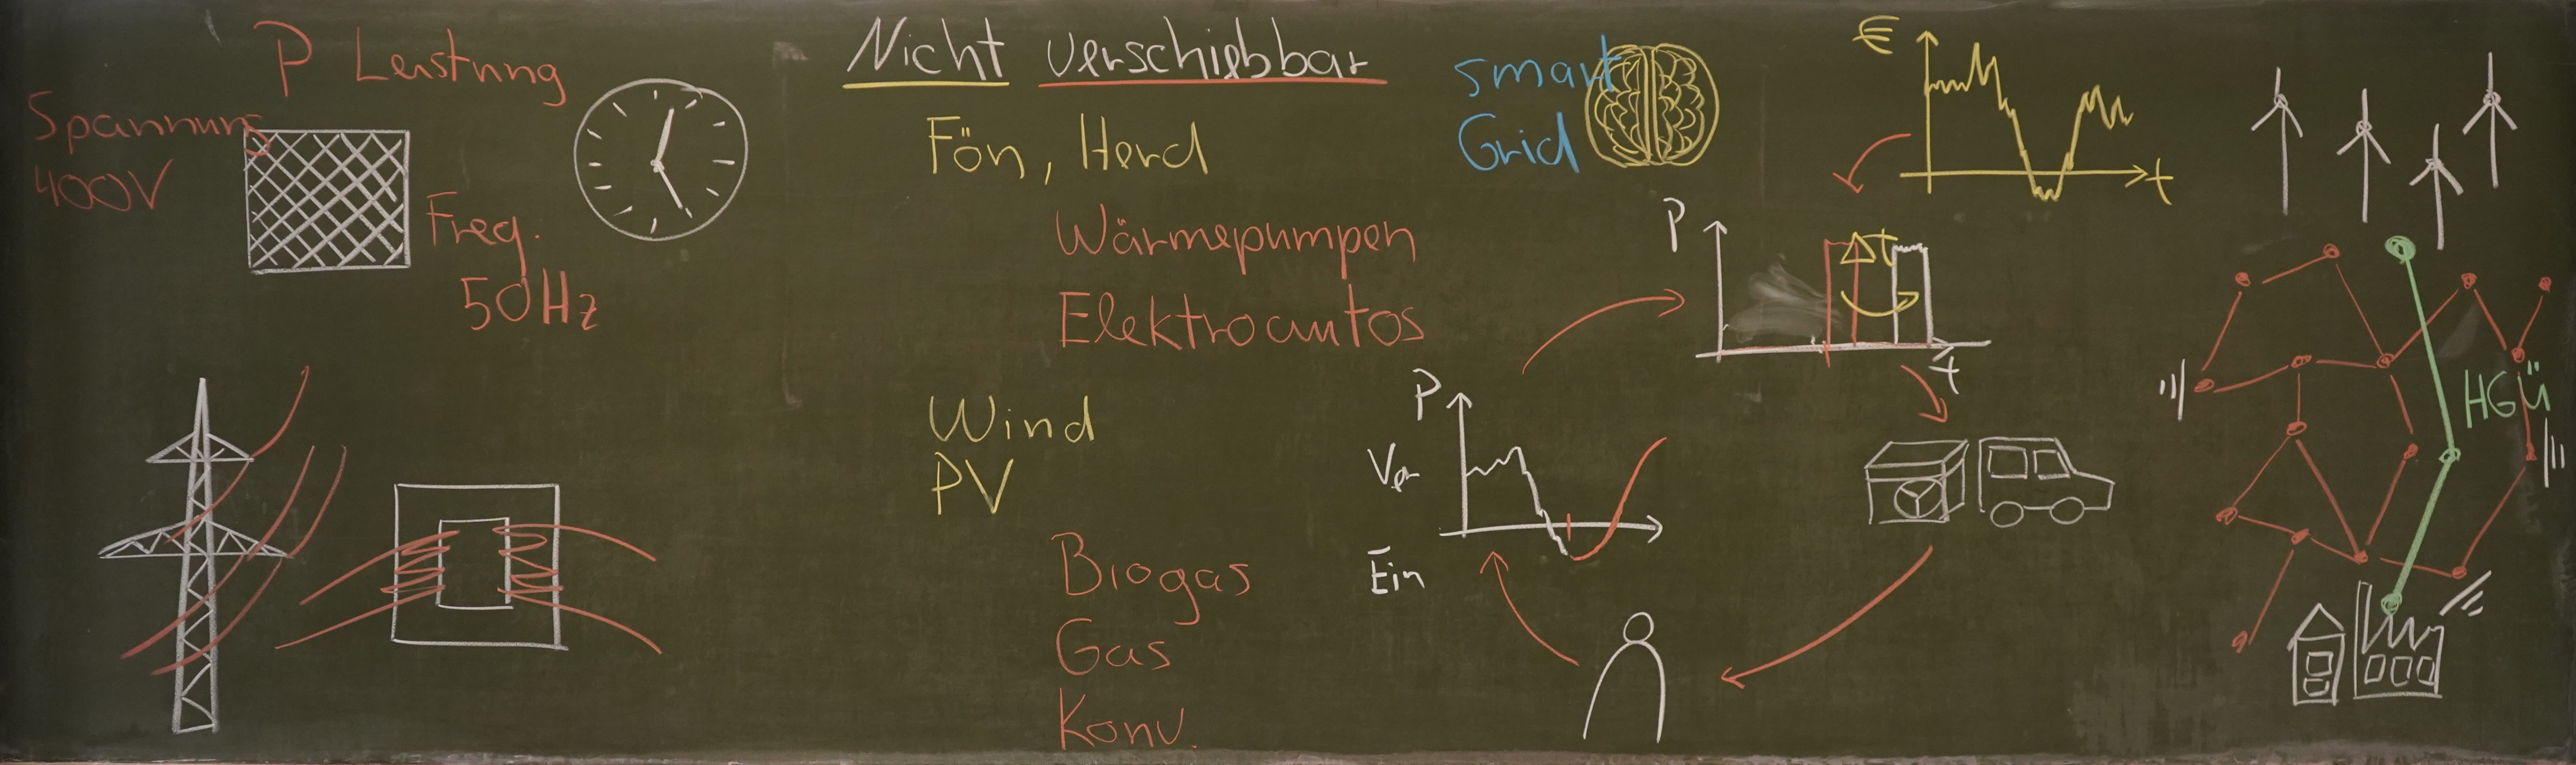 P Leistung
Spannung
400V
Freq.
50Hz
Nicht verschiebbar
Fön, Herd
Wärmepumpen
Elektroautos
Wind
PV
Biogas
Gas
Konv.
smart
Grid
€
t
P
Δt
t
P
Ver
Ein
HGÜ